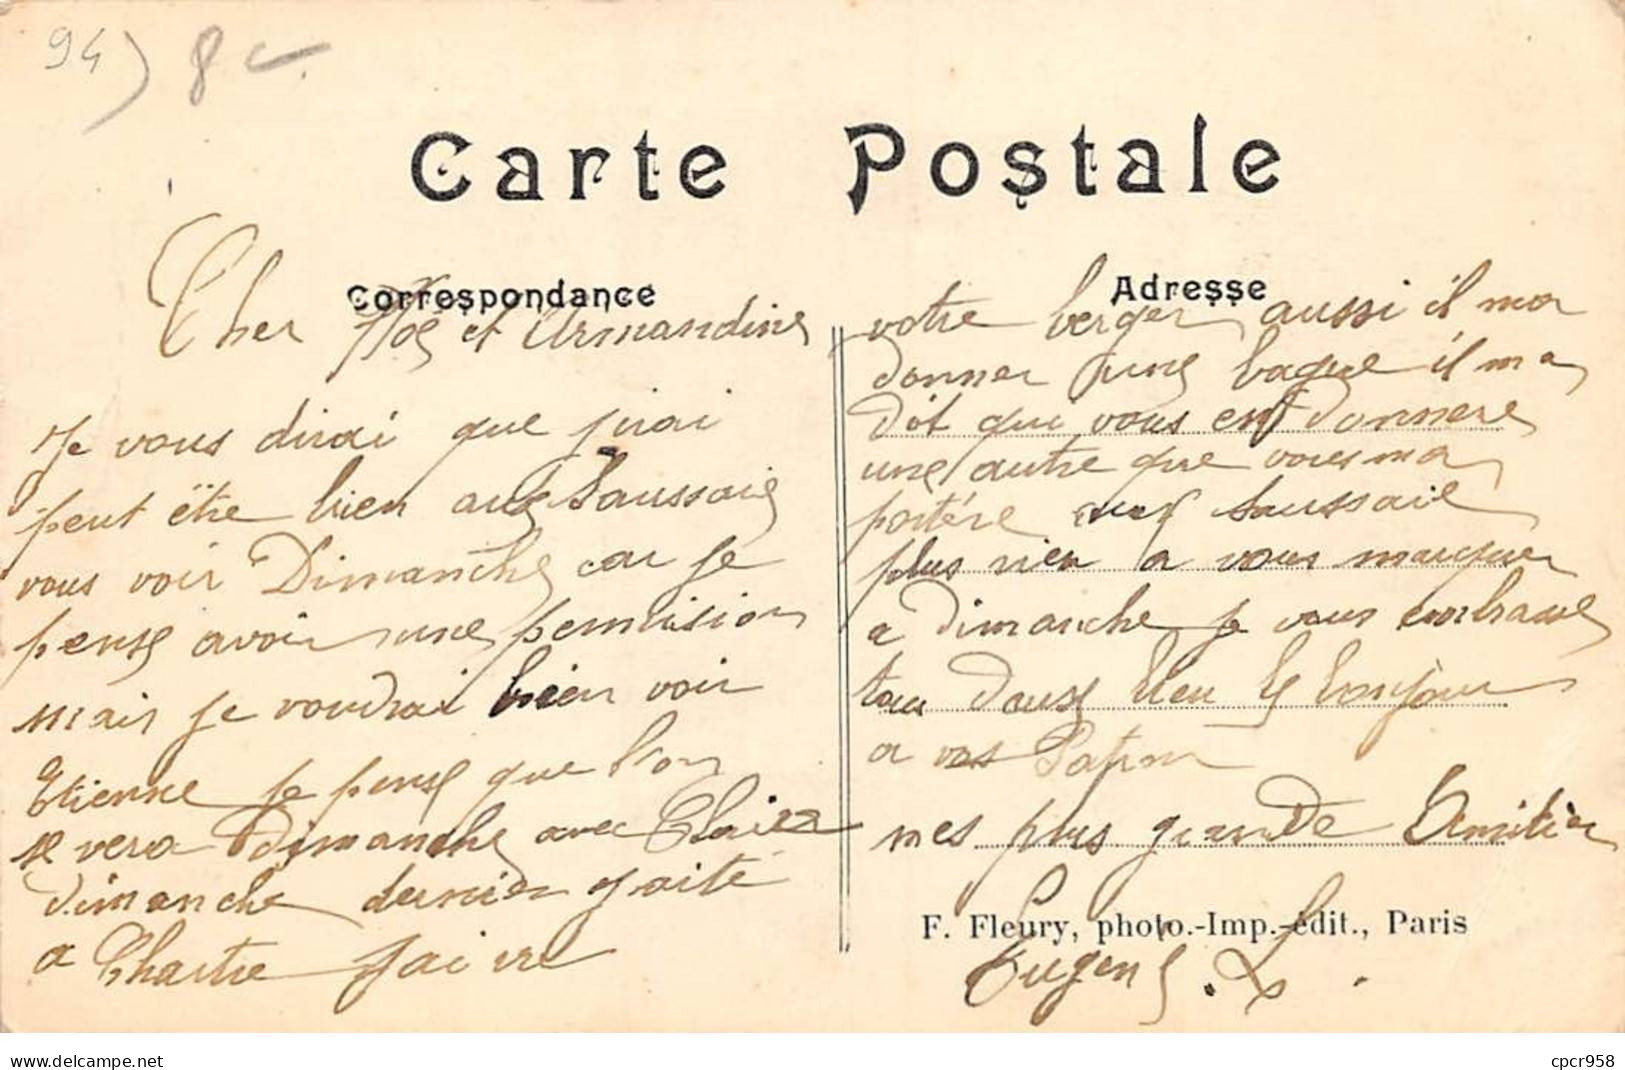 94) 8
Carte Postale
Correspondance
Cher Noé et Armandine
Je vous dirai que jirai
peut être bien aux Saussaie
vous voir Dimanche car je
pense avoir une permision
mais je voudrai bien voir
Etienne je pense que l'on
se vera Dimanche avec
dimanche dernier jaité
a Chartre jai vu
Adresse
votre berger aussi il ma
donner une bague il ma
dit que vous en donnere
une autre que vous ma
portére aux Saussaie
plus rien a vous marquer
a Dimanche je vous embrasse
tou deuse bien le bonjour
a vos Patron
mes plus grande Amitier
F. Fleury, photo.-Imp.-édit., Paris
Eugene. L.
cpcr958